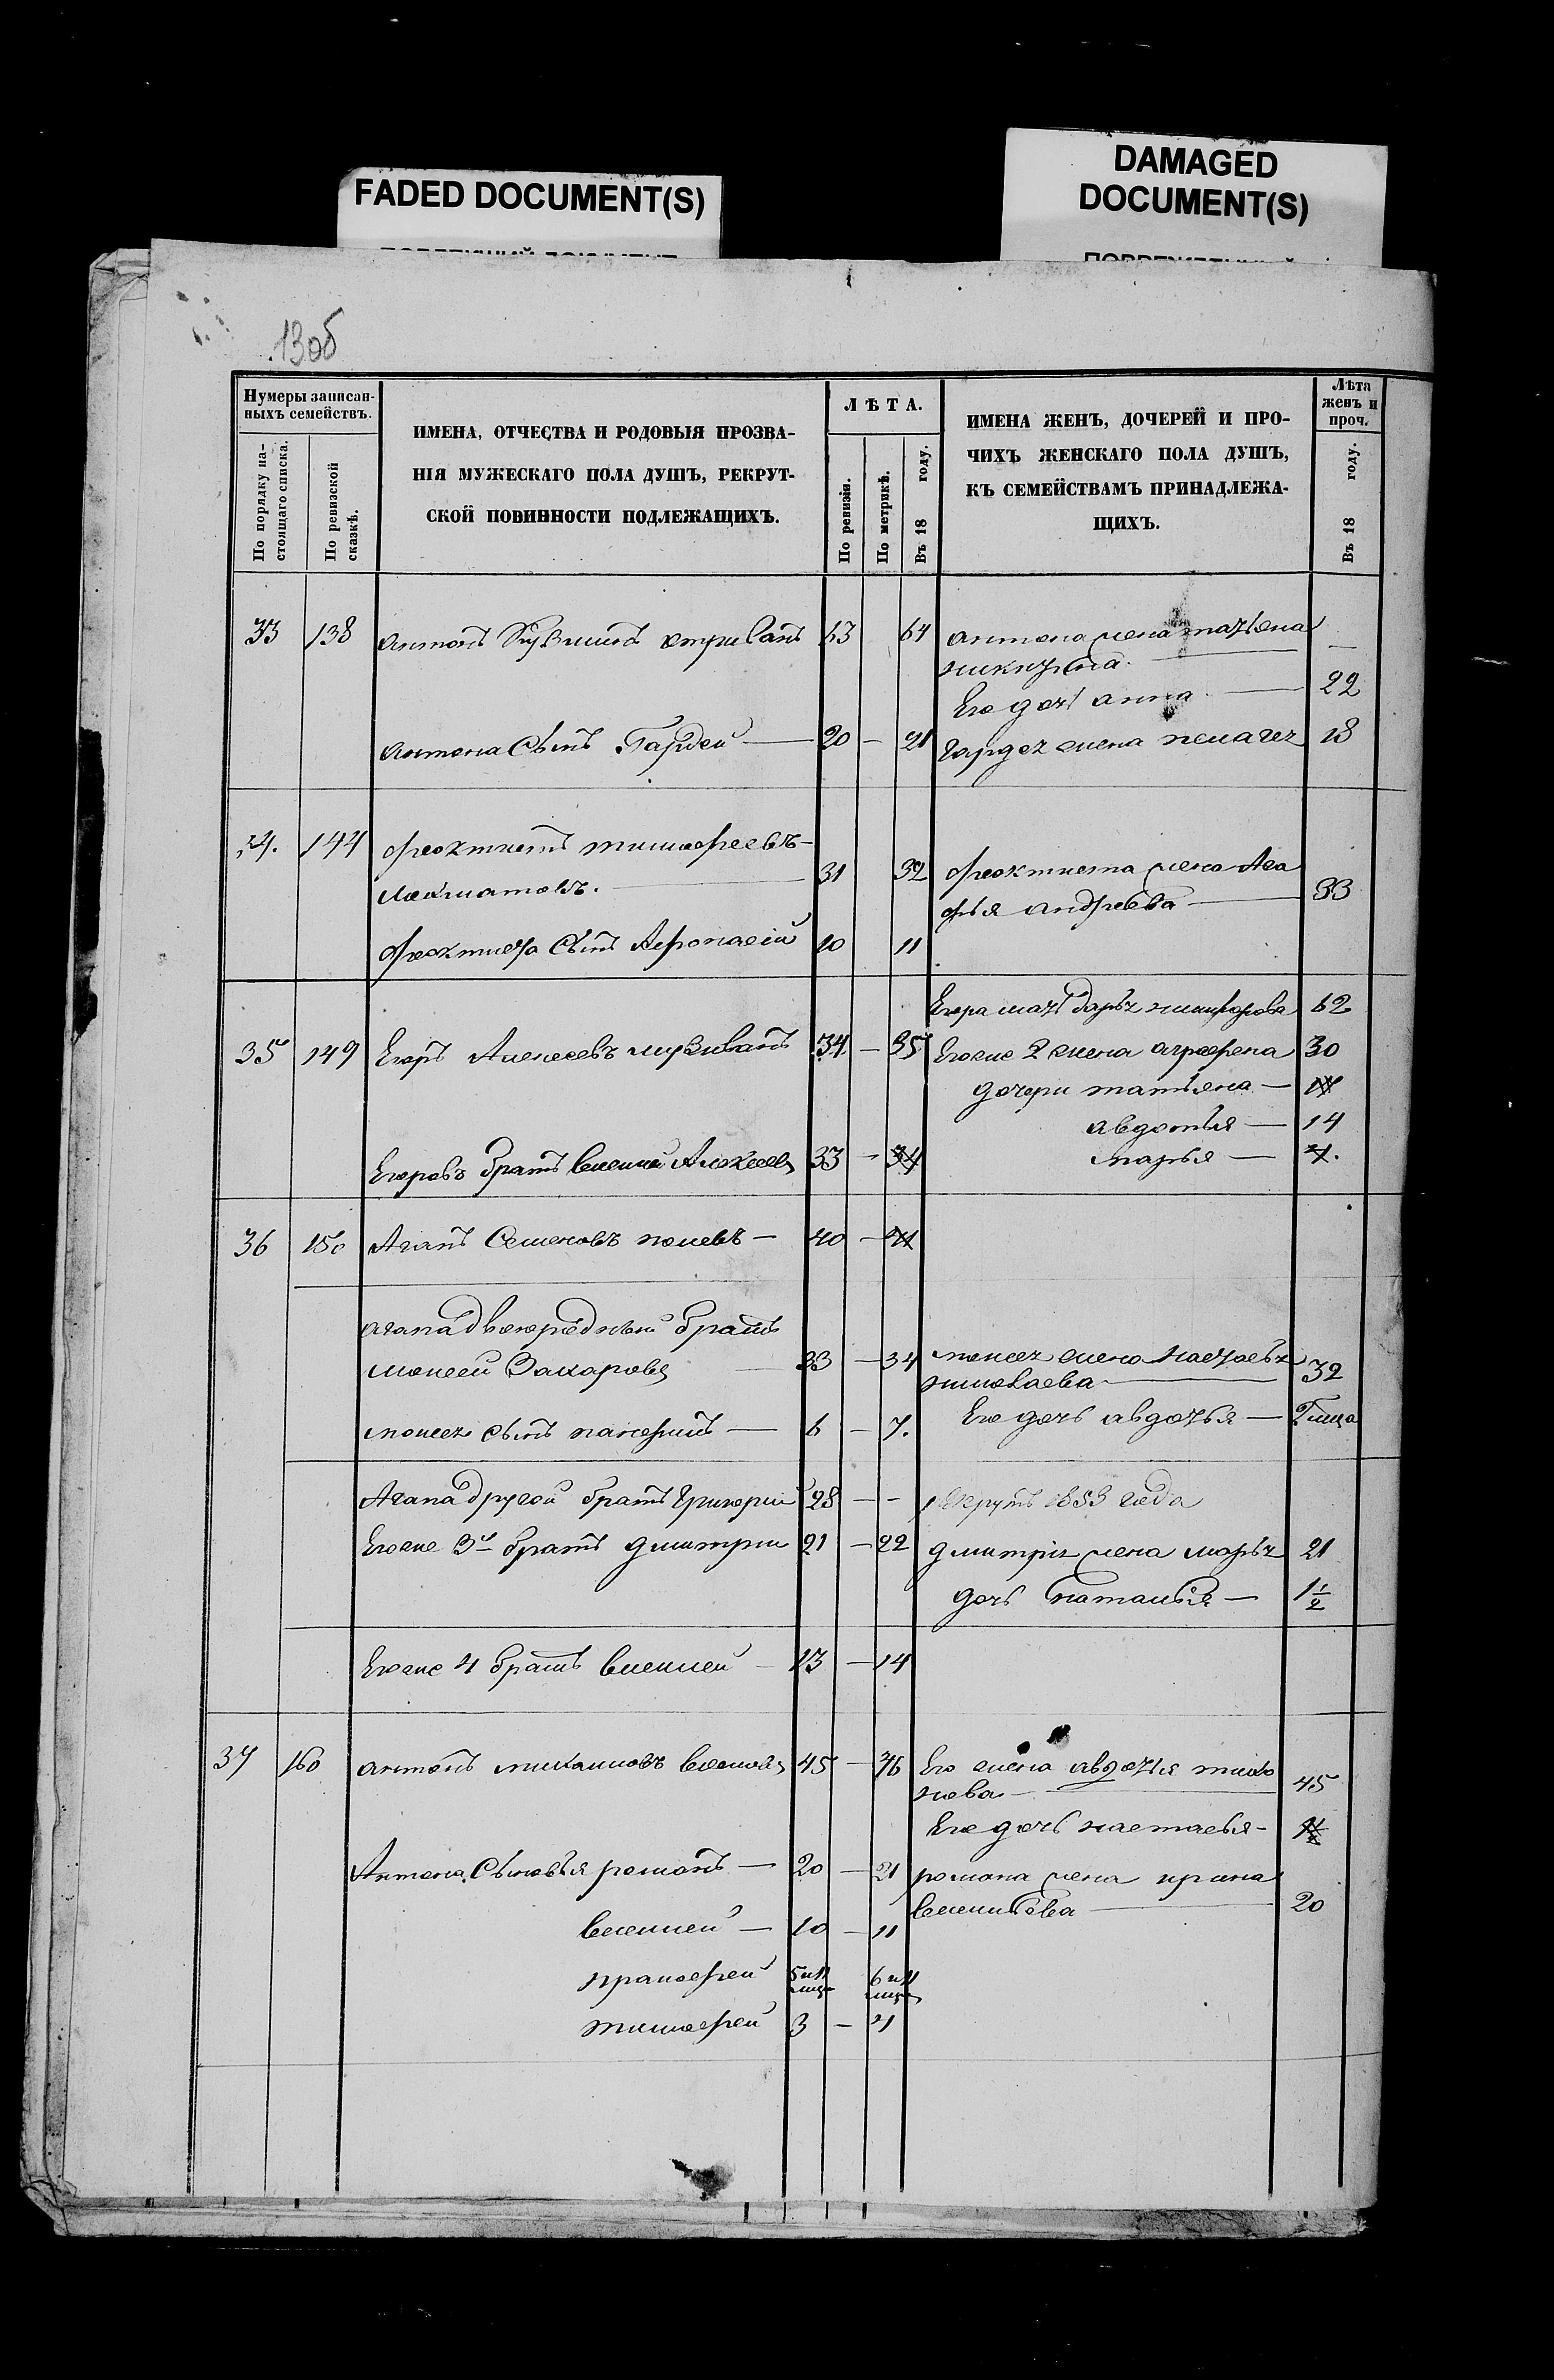 FADED DOCUMENT(S)
DAMAGED
DOCUMENT(S)
13об
Нумеры записан-
ныхъ семействъ.
По порядку на-
стоящаго списка.
По ревизской
сказкѣ.
ИМЕНА, ОТЧЕСТВА И РОДОВЫЯ ПРОЗВА-
НІЯ МУЖЕСКАГО ПОЛА ДУШЪ, РЕКРУТ-
СКОЙ ПОВИННОСТИ ПОДЛЕЖАЩИХЪ.
ЛѢТА.
По ревизіи.
По метрикѣ.
Въ 18 году.
ИМЕНА ЖЕНЪ, ДОЧЕРЕЙ И ПРО-
ЧИХЪ ЖЕНСКАГО ПОЛА ДУШЪ,
КЪ СЕМЕЙСТВАМЪ ПРИНАДЛЕЖА-
ЩИХЪ.
Лѣта
женъ и
проч.
Въ 18 году.
33 138 Антонъ 63 64 Антона жена татьена
Его дочь анна 22
Антона Сынъ Гардей 20 — 21 Гардея жена пелагея 18
144 Феоктистъ тимофеевъ
31 32 Феоктиста жена Ага
фья андреева 33
Феоктиста Сынъ Афонасій 10 11
Егора мать дарья никифорова 62
35 149 Егоръ Алексеевъ 34 — 35 Егоже 2 жена аграфена 30
дочери татьяна —
авдотья — 14
Егоровъ братъ Алексеевъ 33 — 34 марья — 4.
36 150 Агапъ Семеновъ 40 — 41
Агапа двоюродный братъ
моисей Захаровъ 33 — 34 моисея жена настасья
николаева 32
моисея сынъ 6 — 7. Его дочь авдотья — 2 меца
Агапа другой братъ Григорий 28 — — рекрутъ 1853 года
Егоже 3й братъ дмитрий 21 — 22 дмитрия жена марья 21
дочь наталья — 1 1/2
Егоже 4 братъ василей 13 — 14
37 160 Антонъ михаиловъ 45 — 46 Его жена авдотья тихо
нова 45
Его дочь настасья —
Антона Сыновья романъ — 20 — 21 романа жена ирина
20
василей — 10 — 11
прокофей 5 и 11 мцо 6 и 11 мцо
тимофей 3 — 4